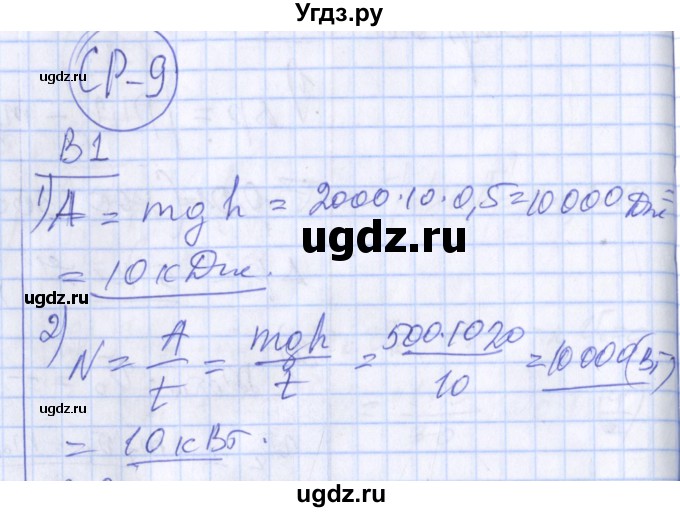 Угдз.ру
СР-9
В1
1) A = mgh = 2000·10·0,5 = 10000 Дж =
= 10 кДж.
2) N = A/t = mgh/t = 500·10 20/10 = 10000 (Вт)
= 10 кВт.
ugdz.ru
ugdz.ru
ugdz.ru
ugdz.ru
ugdz.ru
ugdz.ru
ugdz.ru
ugdz.ru
ugdz.ru